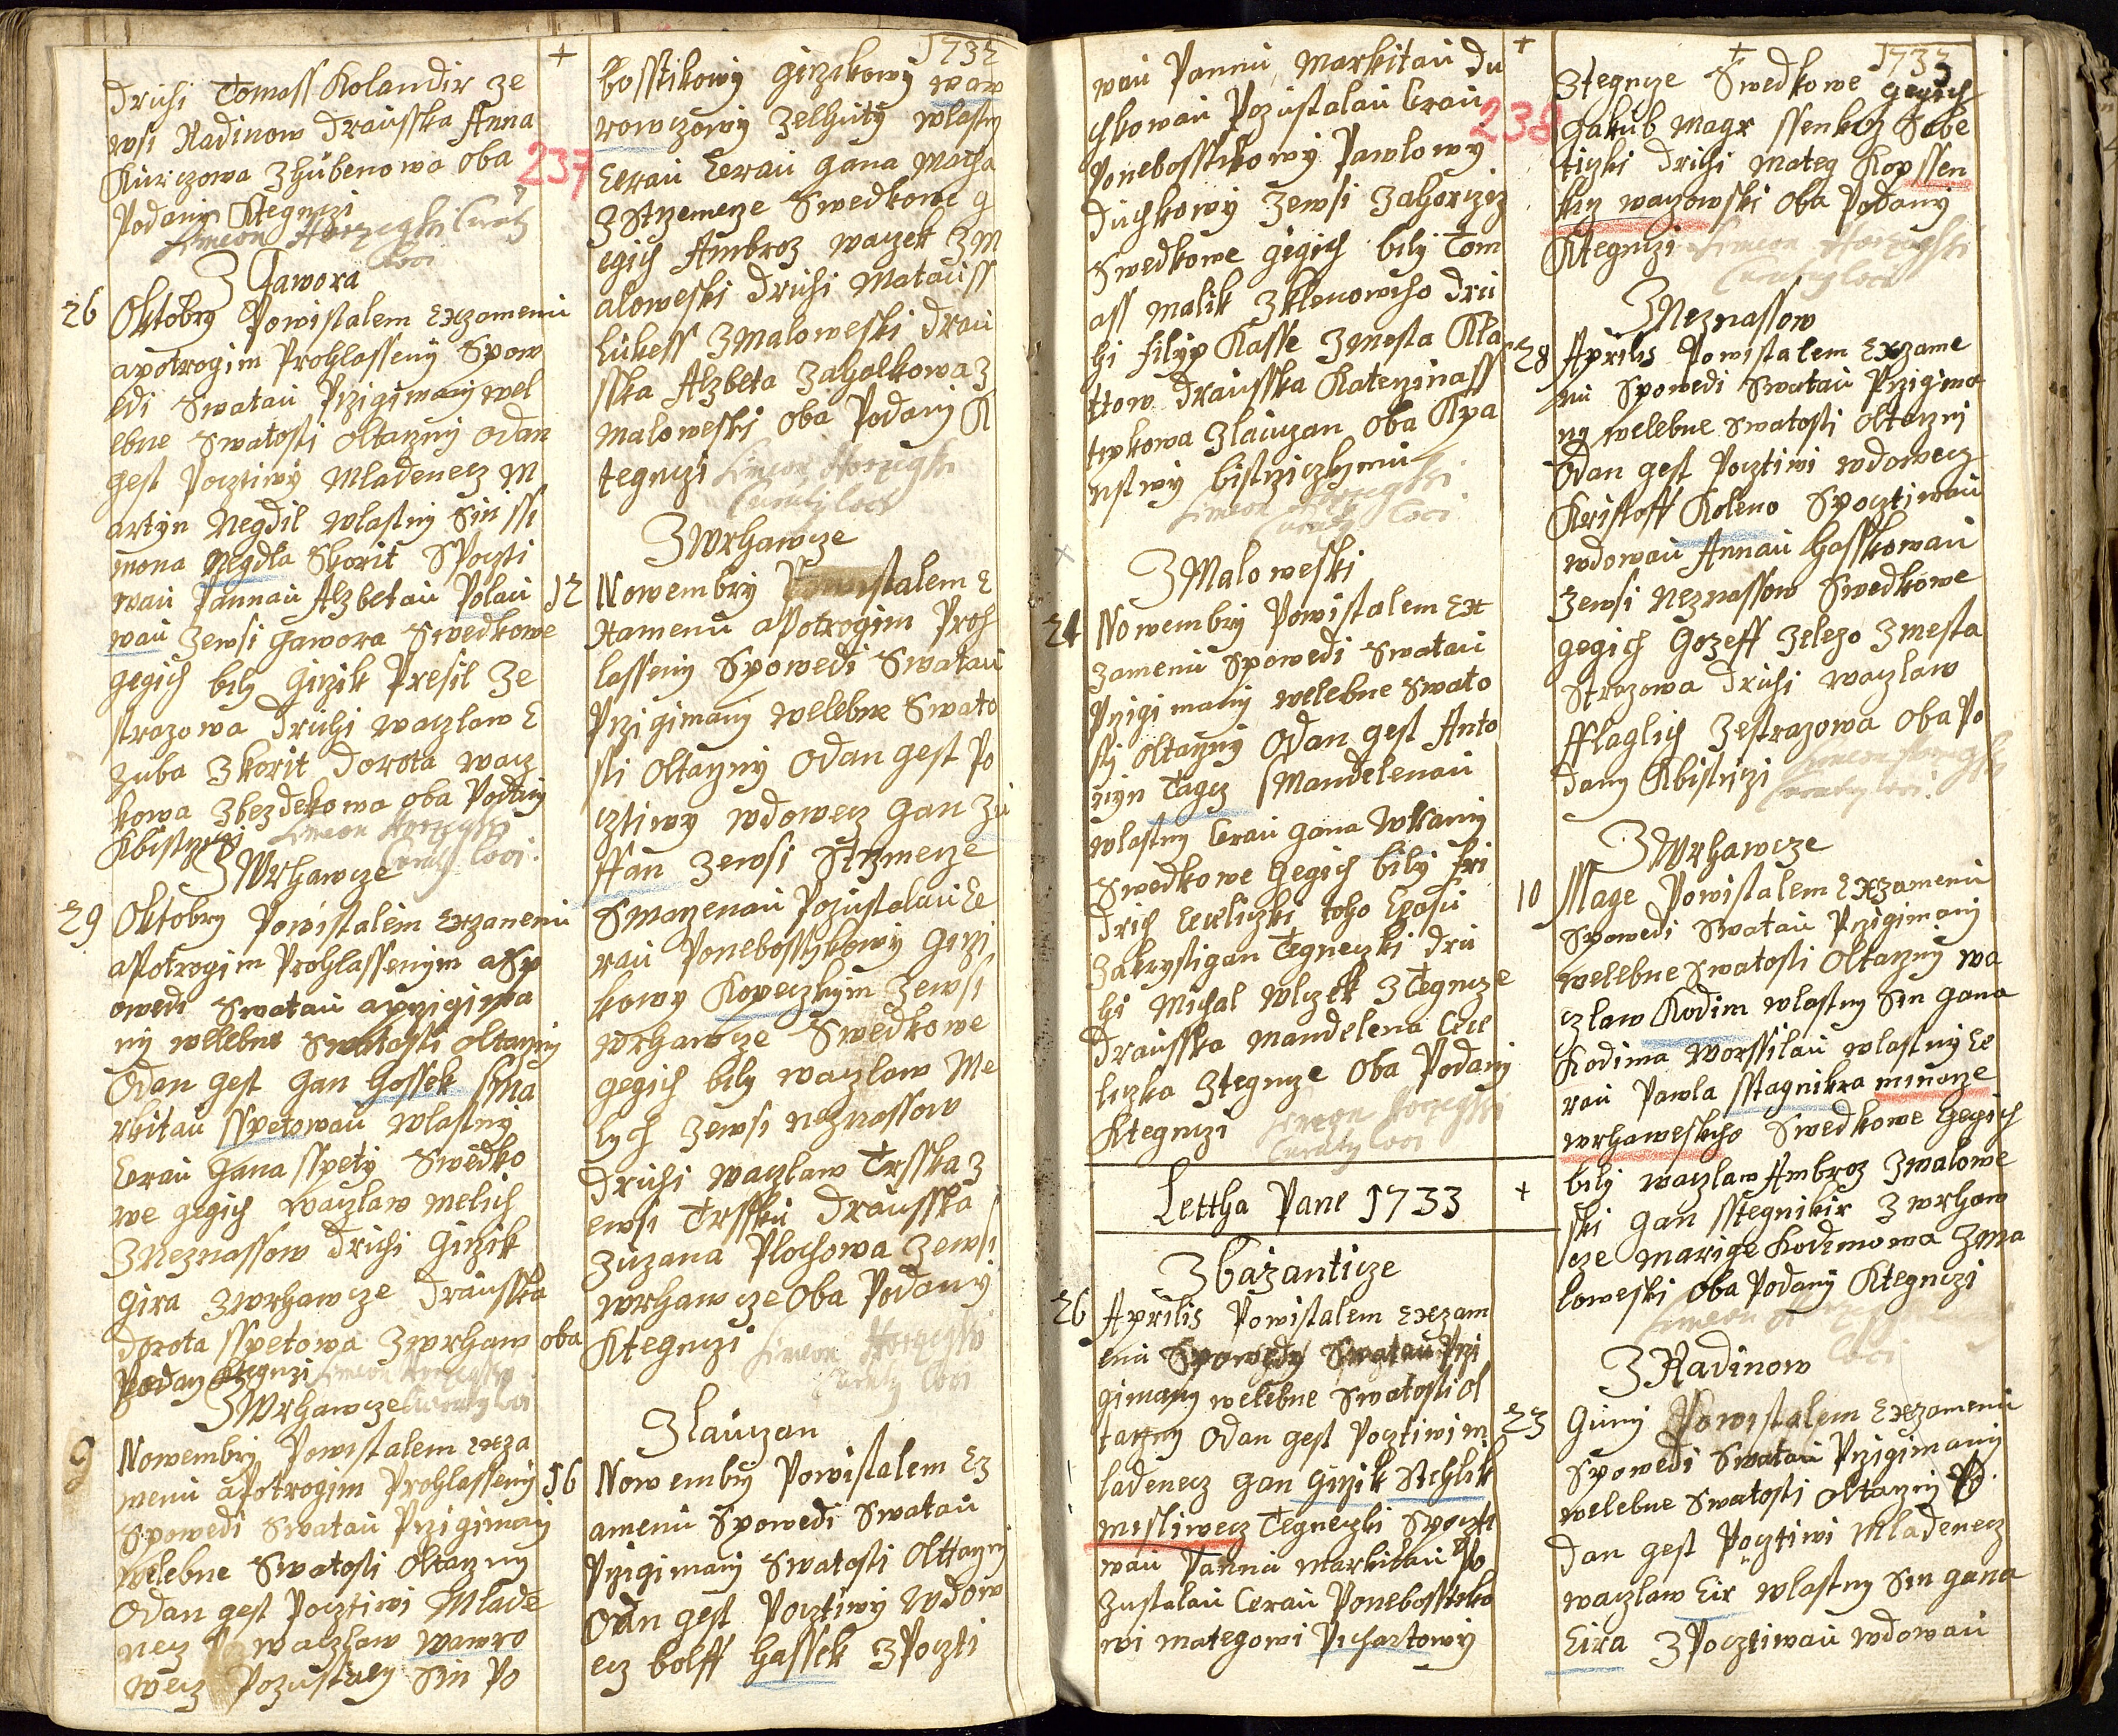 druhi Tomass Kolandir ze
wsi Radinow drausska Anna
Kurczowa Zhubenowa oba
Podany Ktegnczi
Simeon Horzegssi Curatg
loci
Z Jawora
26 Oktobry Powistalem Exzamenu
apotrogim Prohlasseny Spow
edi Swatau Przigimany wel
ebne Swatosti oltarzny odan
gest Pocztiwy Mladenecz M
artyn Negdil wlastny Sin ssi
mona Negdla Skorit SPoczti
wau Pannau Alzbetau Polau
wau Zewsi Gawora Swedkowe
gegich bily Girzik Presil Ze
strazowa druhi waczlaw E
zuba Zkorit Dorota wacz
kowa Zbezdekowa oba Podany
Kbistrzi Simeon Horzegssi
Curatg loci
Z Wrhawcze
29 Oktobry Powistalem Exzanenu
aPotrogim Prohlassenym aSp
owedi Swatau aprzigima
ny welebne Swatosti oltarzny
Odan gest Gan Hossek sMa
rkitau sspetowau wlastny
Cerau Gana sspety Swedko
we gegich Waczlaw Melich
ZNeznassow druhi Girzik
Gira Zwrhawcze drausska
dorota sspetowa Zwrhaw oba
Podany Ktegnczi Simeon Horzegssi
Z Wrhawcze Curatg loci
9 Nowembry Powistalem exza
menu aPotrogim Prohlasseny
Spowedi Swatau Przigimany
Welebne Swatosti Oltarzny
Odan gest Pocztiwi Mlade
necz waczlaw wawro
wecz Pozustaly Sin Po
1732
+
237
bosstikowy girzikowy waw
rowczowy Zelhuty wlastny
Cerau Cerau Gana Macha
ZStrzemeze Swedkowe g
egich Ambroz waczek ZM
aloweski druhi Matauss
Lukess Zmaloweski drau
sska Alzbeta Zahalkowa Z
maloweski oba Podany K
tegnczi Simeon Horzegssi
Curatg loci
Z Wrhawcze
12 Nowembry Powistalem E
xamenu aPotrogim Proh
lasseny Spowedi Swatau
Przigimany welebne Swato
sti Oltarzny Odan gest Po
cztiwy wdowecz Gan Zu
ffan Zewsi Strzmecze
Smarzenau Pozustalau Ce
rau Ponebosstikowy Girzi
kowy Kopeczkym Zewsi
wrhawcze Swedkowe
gegich bily waczlaw Me
lych Zewsi neznassow
druhi waczlaw Trsska Z
ewsi Trsska drausska
Zuzana Plochowa Zewsi
wrhawcze Oba Podany
Ktegnczi Simeon Horzegssi
Curatg loci
Z lauczan
16 Nowembry Powistalem Ex
amenu Spowedi Swatau
Przigimany Swatosti olttarzny
Odan gest Pocztiwy wdow
ecz bolff Hassek ZPoczti
wau Pannu Markitau du
chkowau Pozustalau Cerau
Ponebosstikowy Pawlowy
duchkowy Zewsi Zahorzicz
Swedkowe gegich bily Tom
ass Malik Zklenowcho dru
hi filyp Kasse Zmesta Kla
ttow drausska Katerzinass
trpkowa Zlauczan oba Kpa
nstwy bistrziczkymu
Simeon Horzegssi
Curatg loci
Z Maloweski
24 Nowembry Powistalem Ex
zamenu Spowedi Swatau
Przigimany welebne Swato
sty oltarzny Odan gest Anto
niyn Tagcz sMandelenau
wlastny Cerau Gana Wkany
Swedkowe gegich bily Fri
drich Cecliczki toho Czasu
Zakrystigan Tegneczki dru
hi Michal Wlczek ZTegncze
drausska Mandelena Cecl
liczka Ztegncze Oba Podany
Ktegnczi Simeon Horzegssi
Curatg loci
Lettha Pane 1733 +
Z bazanticze
26 Aprilis Powistalem Exzam
enu Spowedy Swatau Przi
gimany welebne Swatosti ol
tarzny Odan gest Pocztiwi m
ladenecz Gan Girzik Stehlik
misliwecz Tegneczki Spoczti
wau Pannu Markitau Po
zustalau Cerau Ponebosstiko
wi Mategowi Pichartowy
+
238
+ 1733
Ztegncze Swedkowe gegich
Gakub Magr ssenkrz Sobe
ticzki druhi Mateg Kopssen
krz waczowski oba Podany
Ktegnczi Simeon Horzegssi
Curatg loci
Z Neznassow
28 Aprilis Powistalem Exzame
nu Spowedi Swatau Przigima
ny welebne Swatosti oltarzny
Odan gest Pocztiwi wdowecz
Kristoff Koleno Spocztiwau
wdowau Annau Hasskowau
Zewsi Neznassow Swedkowe
gegich Gozeff Zelezo Zmesta
Strazowa druhi waczlaw
fflaglich Zestrazowa oba Po
dany Kbistrziczi Simeon Horzegssi
Curatg loci
Z Wrhawcze
10 Mage Powistalem Exzamenu
Spowedi Swatau Przigimany
welebne Swatosti Oltarzny wa
czlaw Kodim wlastny Sin Gana
Kodima Worssilau wlastny Ce
rau Pawla sstagnikra minarze
wrhaweskcho Swedkowe gegich
bily waczlaw Ambroz Zmalowe
ski Gan sstegnikir Zwrhaw
cze marige Kodimowa Zma
loweski Oba Podany Ktegnczi
Simeon Horzegssi
loci
Z Radinow
23 Guny Powistalem Exzamenu
Spowedi Swatau Przigimany
welebne Swatosti oltarzny O
dan gest Pocztiwi Mladenecz
waczlaw Eir wlastny Sin Gana
Eira ZPocztiwau wdowau